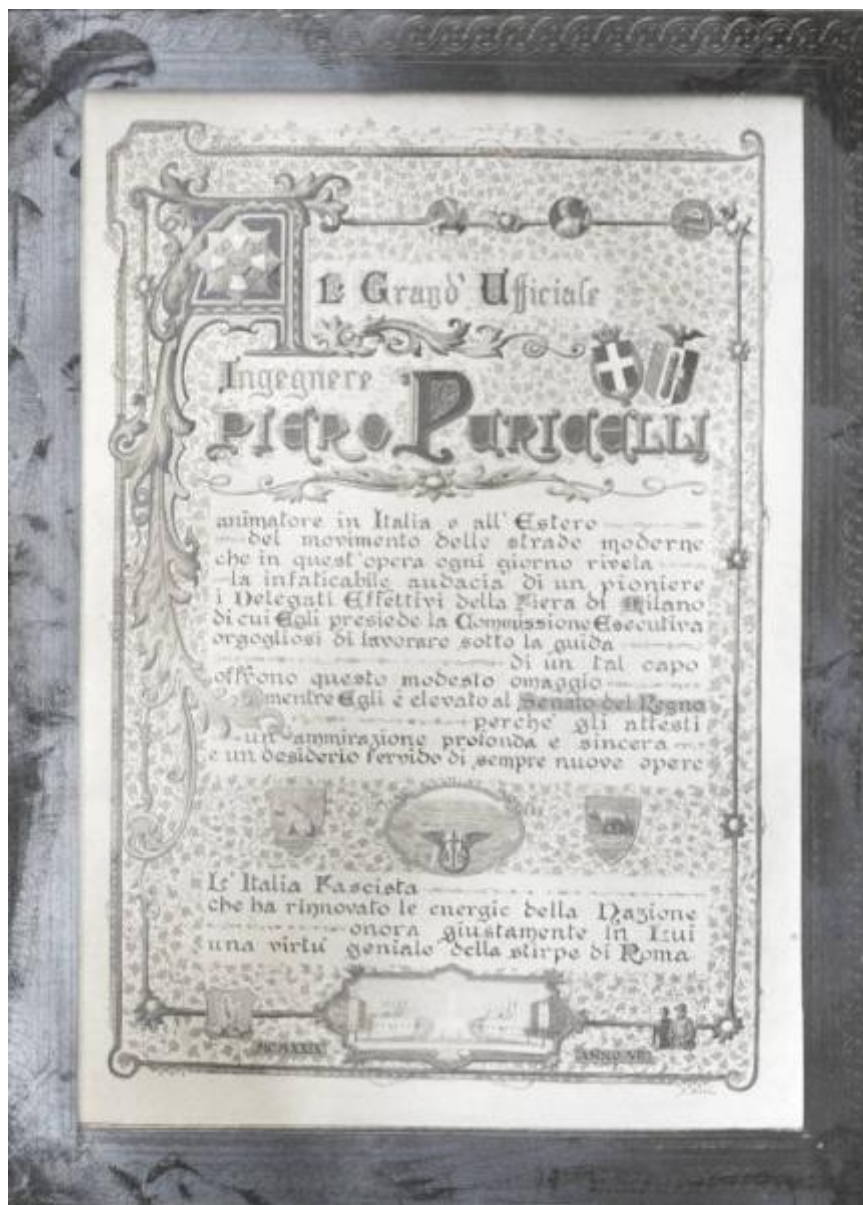 Al Grand' Ufficiale
Ingegnere
PIERO PURICELLI
animatore in Italia e all' Estero
del movimento delle strade moderne
che in quest'opera ogni giorno rivela
la infaticabile audacia di un pioniere
i Delegati Effettivi della Fiera di Milano
di cui Egli presiede la Commissione Esecutiva
orgogliosi di lavorare sotto la guida
di un tal capo
offrono questo modesto omaggio
mentre Egli è elevato al Senato del Regno
perchè gli attesti
un' ammirazione profonda e sincera
e un desiderio fervido di sempre nuove opere
L' Italia Fascista
che ha rinnovato le energie della Nazione
onora giustamente in Lui
una virtù geniale della stirpe di Roma
MCMXXIX
ANNO VII